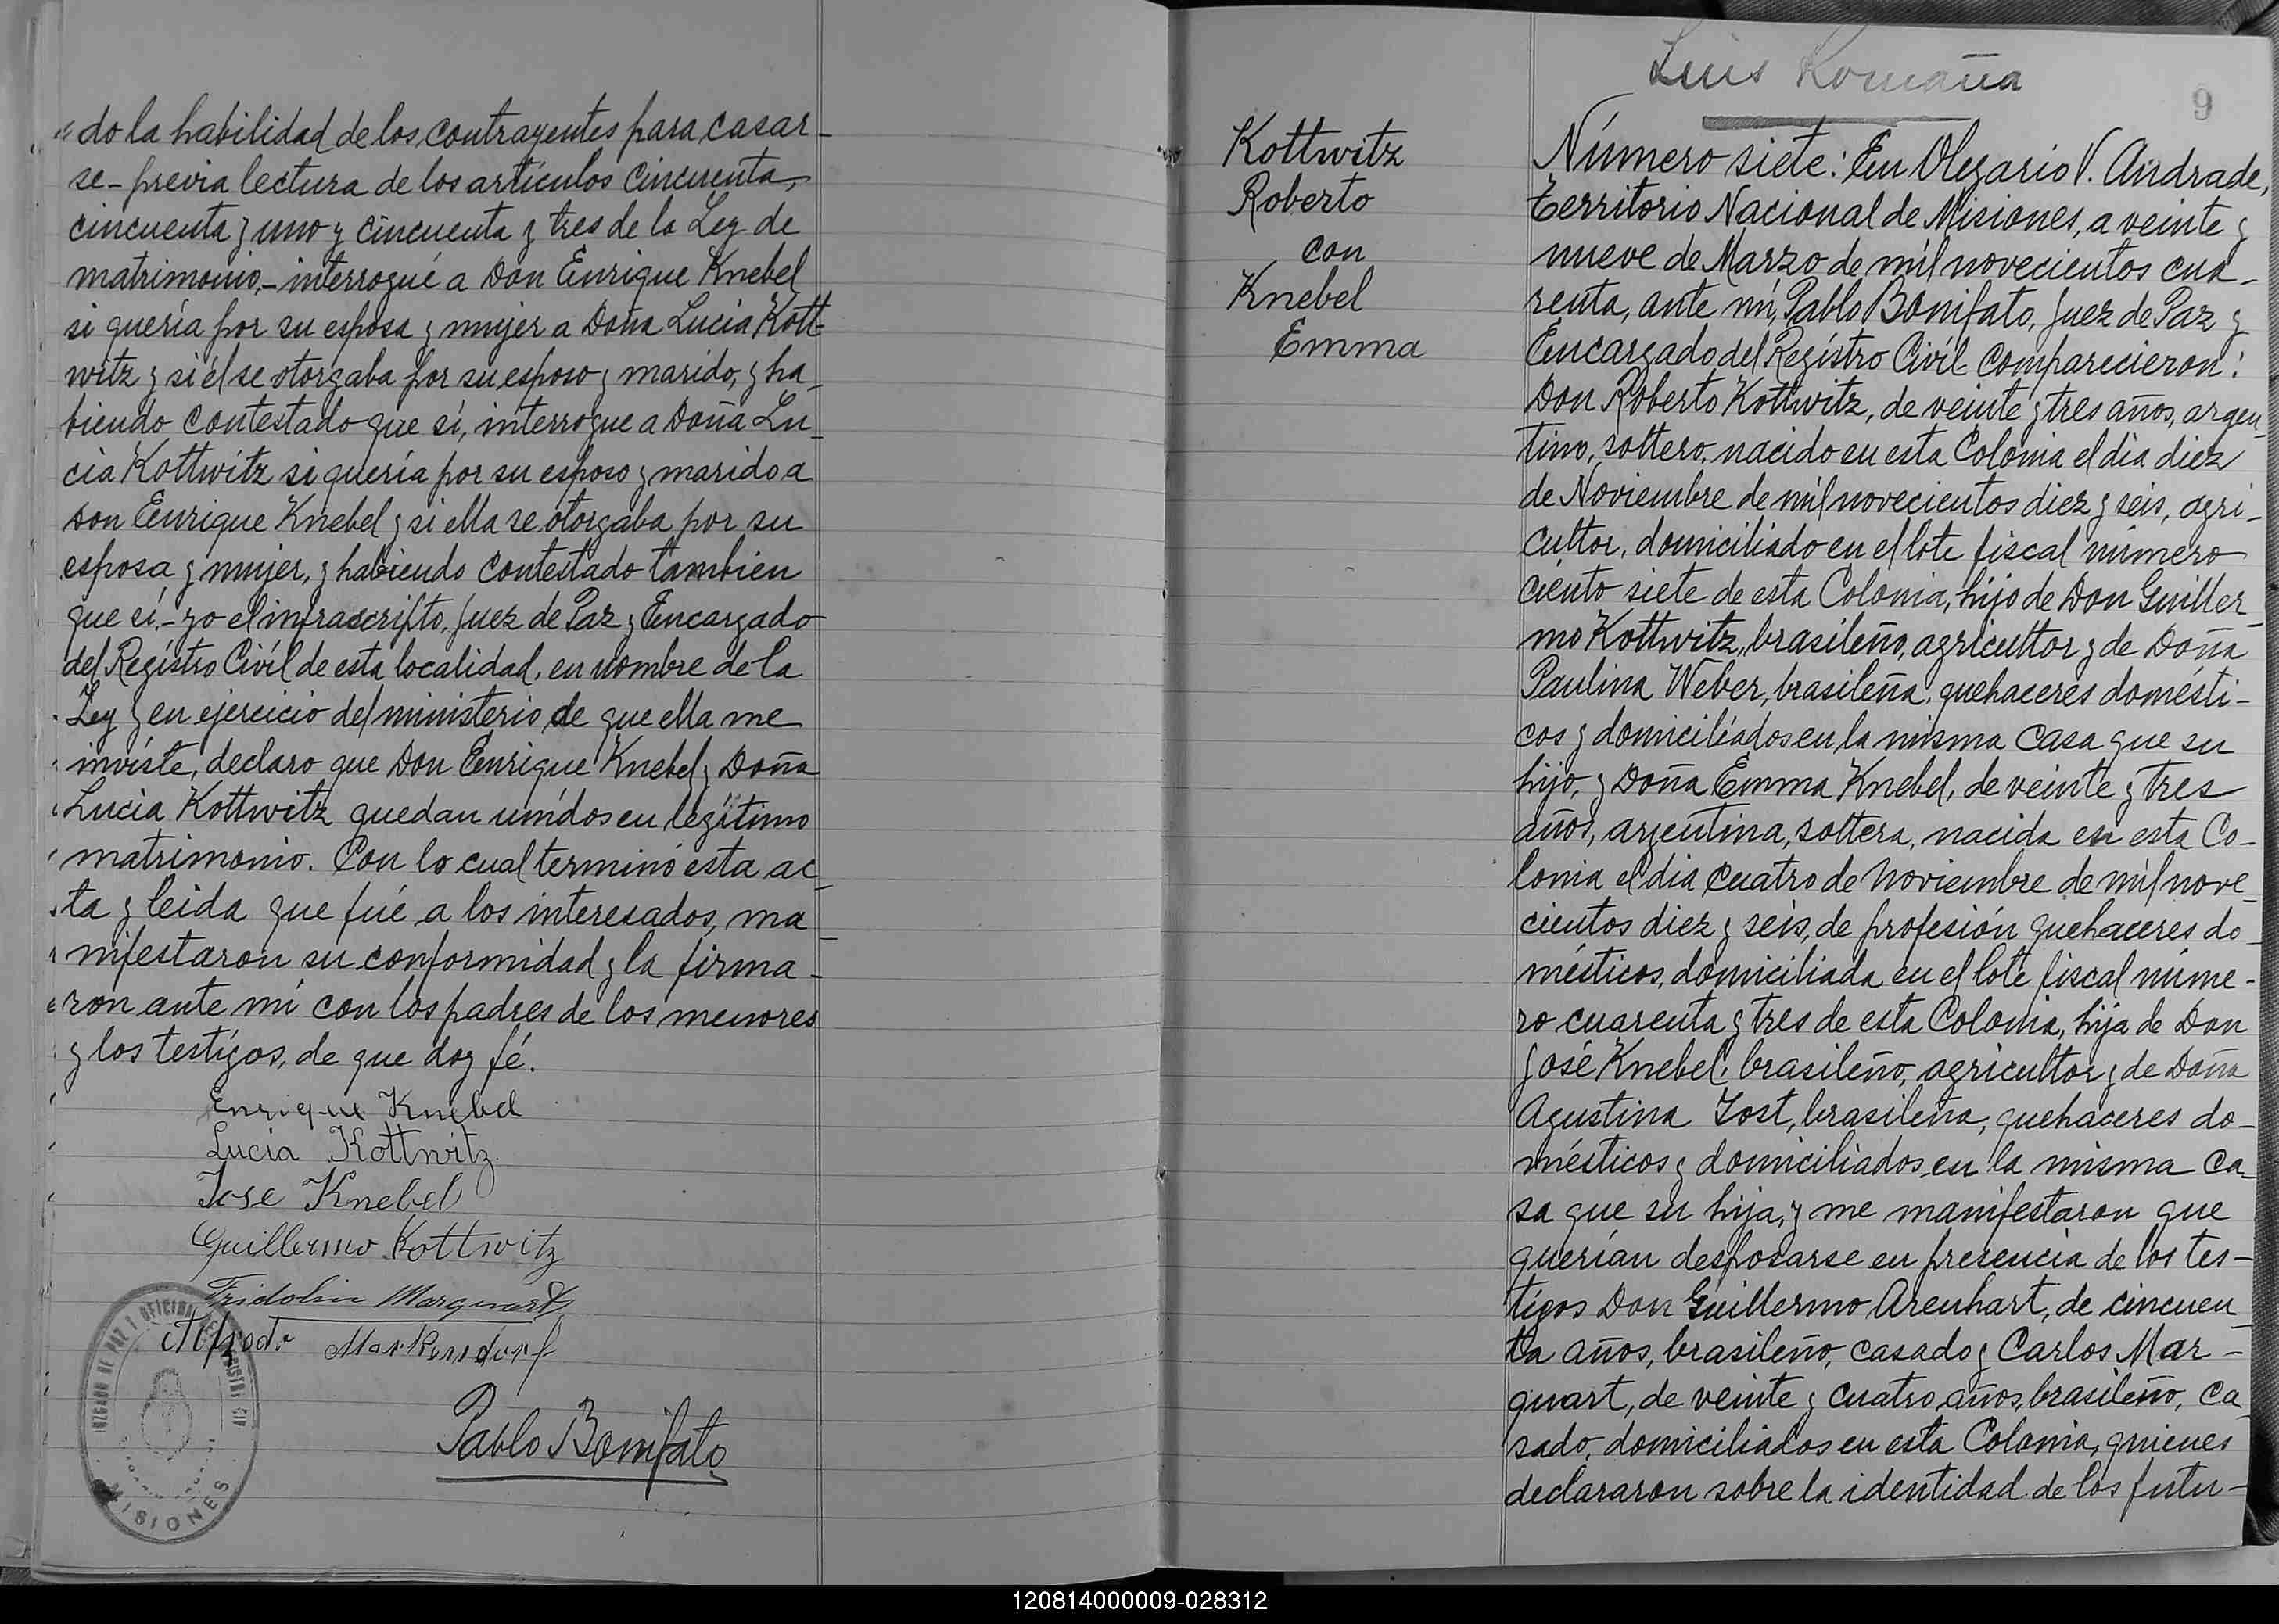 do la habilidad de los contrayentes para casar-
se - previa lectura de los artículos cincuenta,
cincuenta y uno y cincuenta y tres de la Ley de
matrimonio, - interrogué a Don Enrique Knebel
si quería por su esposa y mujer a Doña Lucia Kott-
witz y si él se otorgaba por su esposo y marido, y ha-
biendo contestado que sí, interrogue a Doña Lu-
cia Kottwitz si quería por su esposo y marido a
Don Enrique Knebel y si ella se otorgaba por su
esposa y mujer, y habiendo contestado tambien
que sí, - yo el infrascripto, Juez de Paz y Encargado
del Regístro Civíl de esta localidad, en nombre de la
Ley y en ejercicio del ministerio de que ella me
invíste, declaro que Don Enrique Knebel y Doña
Lucia Kottwitz quedan unídos en legítimo
matrimonio. Con lo cual terminó esta ac-
ta y leida que fué a los interesados, ma-
nifestaron su conformidad y la firma-
ron ante mí con los padres de los menores
y los testígos, de que doy fé.
Enrique Knebel
Lucia Kottwitz
Jose Knebel
Guillermo Kottwitz
Fridolin Marquart
Alfredo Markendorf
Pablo Bonifato
JUZGADO DE PAZ Y OFICINA DEL REGISTRO CIVIL
MISIONES
Luis Romaña
9
Kottwitz
Roberto
con
Knebel
Emma
Número siete: En Olegario V. Andrade,
Territorio Nacional de Misiones, a veinte y
nueve de Marzo de mil novecientos cua-
renta, ante mí, Pablo Bonifato, Juez de Paz y
Encargado del Regístro Civíl comparecieron:
Don Roberto Kottwitz, de veinte y tres años, argen-
tino, soltero, nacido en esta Colonia el dia diez
de Noviembre de mil novecientos diez y seis, agri-
cultor, domiciliado en el lote fiscal número
ciento siete de esta Colonia, hijo de Don Guiller-
mo Kottwitz, brasileño, agricultor y de Doña
Paulina Weber, brasileña, quehaceres domésti-
cos y domiciliados en la misma casa que su
hijo, y Doña Emma Knebel, de veinte y tres
años, argentina, soltera, nacida en esta Co-
lonia el dia cuatro de Noviembre de mil nove-
cientos diez y seis, de profesión quehaceres do-
mésticos, domiciliada en el lote fiscal núme-
ro cuarenta y tres de esta Colonia, hija de Don
José Knebel, brasileño, agricultor y de Doña
Agustina Jost, brasileña, quehaceres do-
mésticos y domiciliados en la misma ca-
sa que su hija, y me manifestaron que
querían desposarse en presencia de los tes-
tígos Don Guillermo Arenhart, de cincuen-
ta años, brasileño, casado y Carlos Mar-
quart, de veinte y cuatro años, brasileño, ca-
sado, domiciliados en esta Colonia, quienes
declararon sobre la identidad de los futu-
120814000009-028312